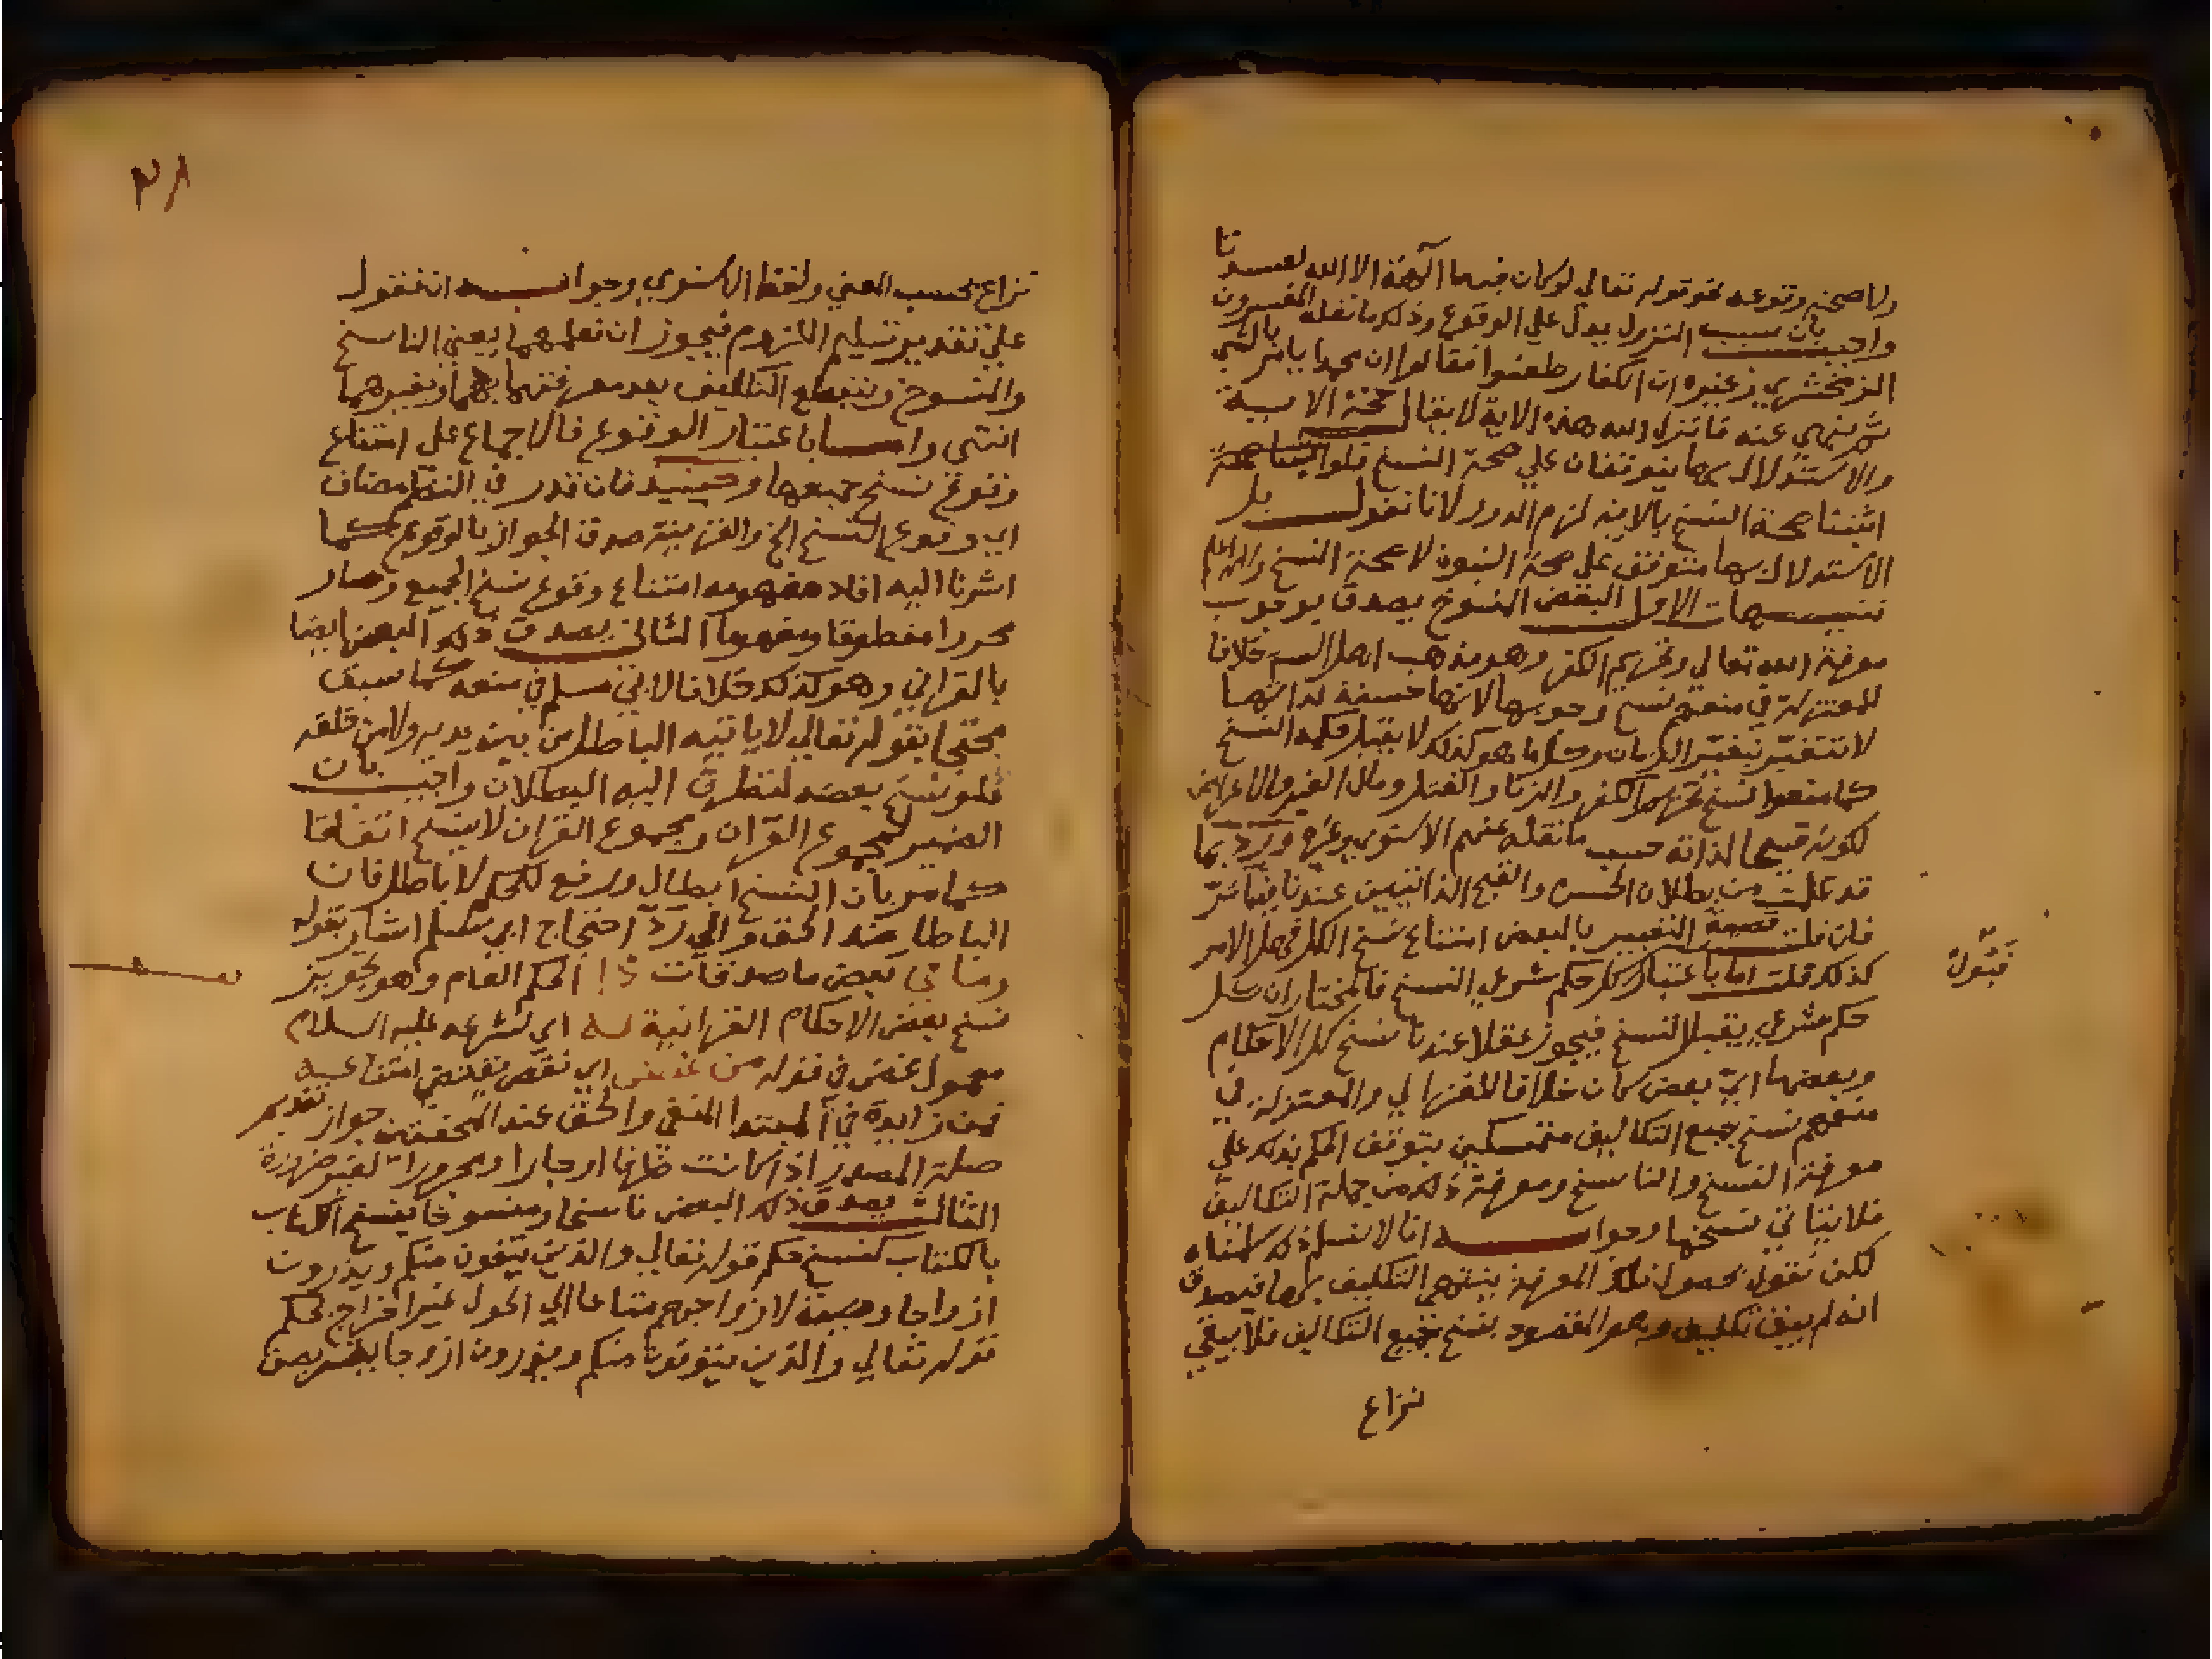 ولا صحته وقوعه نحو قوله تعالى لوكان فيهما آلهة الا الله لفسدتا
واجيب بان سبب النزول يدل علي الوقوع وذلك ما نقله المفسرون
الزمخشري وغيره ان الكفار طعنوا فقالوا ان محمدا يامر بالشي
ثم ينهي عنه فانزل الله هذه الاية لا يقال صحة الاية
والاستدلال بها يتوقفان علي صحة النسخ فلو اثبتنا صحة
اثبتنا صحة النسخ بالاية لزم الدور لانا نقول بل
الاستدلال بها متوقف علي صحة النبوة لا صحة النسخ والله اعلم
تنبيهات الاول البعض المنسوخ يصدق بوجوب
معرفة الله تعالي وتحريم الكفر وهو مذهب اهل السنة خلافا
للمعتزلة في منعهم نسخ وجوبها لانها حسنة لذاتها
لا تتغير بتغير الزمان وكل ما هو كذلك لا يقبل حكمه النسخ
كما منعوا نسخ تحريم الكفر والزنا والقتل ومال الغير والاعراض
لكونه قبيحا لذاته حسب ما نقله عنهم الاسنوي وغيره ورد بما
قد علمت من بطلان الحسن والقبح الذاتيين عندنا فيما مر
فان قلت قضية التعبير بالبعض امتناع نسخ الكل فهل الامر
كذلك قلت اما باعتبار كل حكم شرعي النسخ فالمختار ان كل
قبول
حكم شرعي يقبل النسخ فيجوز عقلا عندنا نسخ كل الاحكام
وبعضها اي بعض كان خلافا للغزالي والمعتزلة في
منعهم نسخ جميع التكاليف متمسكين بتوقف الحكم بذلك علي
معرفة النسخ والناسخ ومعرفة ذلك من جملة التكاليف
فلا يتاتي نسخها وجوابه انا لا نسلم ذلك سلمناه
لكن نقول بحصول تلك المعرفة ينتهي التكليف بها فيصدق
انه لم يبق تكليف وهو المقصود بنسخ جميع التكاليف فلا يبقي
نزاع
٢٨
نزاع بحسب المعني ولفظ الاسنوي وجوابه انا نقول
علي تقدير تسليم اللزوم فيجوز ان نعلمهما يعني الناسخ
والمنسوخ وينقطع التكليف بعد معرفتهما بهما وبغيرهما
انتهي واما باعتبار الوقوع فالاجماع علي امتناع
وقوع نسخ جميعها وحينيذ فان قدر في النظم مضاف
اي وقوع النسخ الخ والقرينة صدق الجواز بالوقوع كما
اشرنا اليه افاد مفهومه امتناع وقوع نسخ الجميع وصار
محررا منطوقا ومفهوما الثاني يصدق ذلك البعض ايضا
بالقراني وهو كذلك خلافا لابي مسلم في منعه كما سبق
محتجا بقوله تعالي لا ياتيه الباطل من بين يديه ولا من خلفه
فلو نسخ بعضه لتطرق اليه البطلان واجيب بان
الضمير لمجموع القرآن ومجموع القران لا ينسخ اتفاقا
كما مر وبان النسخ ابطال ورفع لحكم لا باطل فان
الباطل ضد الحق والي رد احتجاج ابي مسلم اشار بقوله
وما في بعض ما صدقات ذا الحكم العام وهو تجويز
نسخ بعض الاحكام القرانية له اي لشرعه عليه السلام
معمول غض في قوله من غض اي نقص يقتضي امتناعه
فمن زايدة في المبتدا المنفي والحق عند المحققين جواز تقديم
صلة المصدر اذا كانت ظرفا او جارا ومجرورا لغير ضرورة
الثالث يصدق ذلك البعض ناسخا ومنسوخا بنسخ الكتاب
بالكتاب كنسخ حكم قوله تعالي والذين يتوفون منكم ويذرون
ازواجا وصية لازواجهم متاعا الي الحول غير اخراج بحكم
قوله تعالي والذين يتوفون منكم ويذرون ازواجا يتربصن